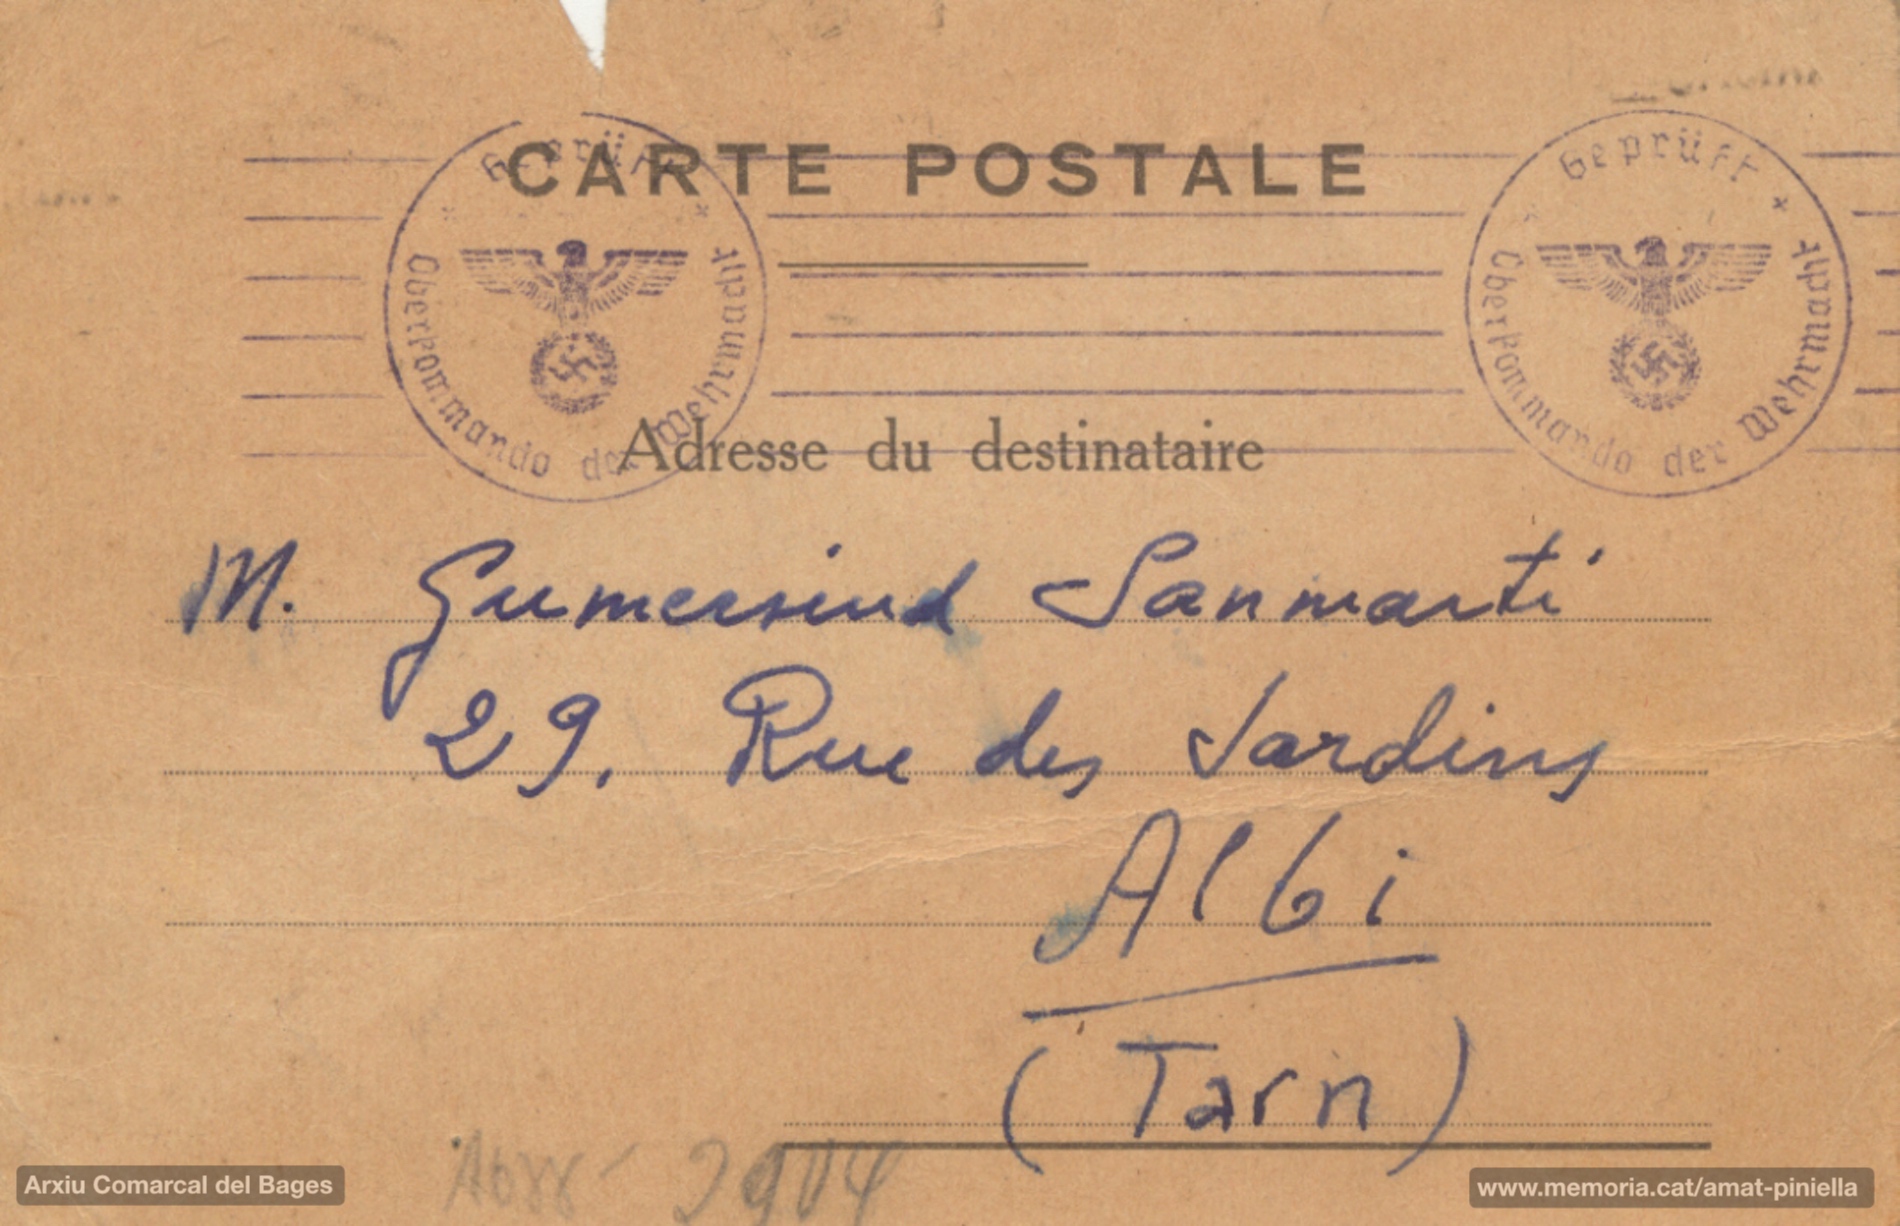 CARTE POSTALE
Geprüft
Oberkommando der Wehrmacht
Geprüft
Oberkommando der Wehrmacht
Adresse du destinataire
M. Gumersind Sanmartí
29, Rue des Jardins
Albi
(Tarn)
Arxiu Comarcal del Bages
www.memoria.cat/amat-piniella